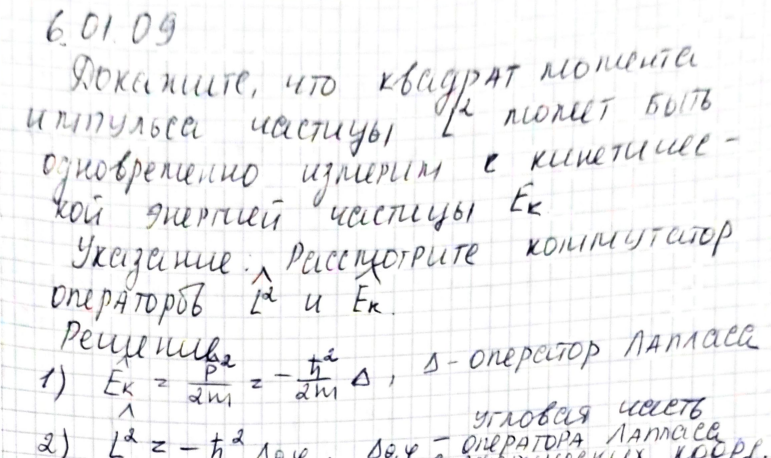 6.01.09
Докажите, что квадрат момента
импульса частицы L² может быть
одновременно измерим с кинетичес-
кой энергией частицы Eк
Указание: Рассмотрите коммутатор
операторов L̂² и Êк.
Решение
1) Êк = p̂²/2m = -ħ²/2m Δ, Δ - оператор Лапласа
2) L̂² = -ħ² Δθ,φ, Δθ,φ - угловая часть
оператора Лапласа